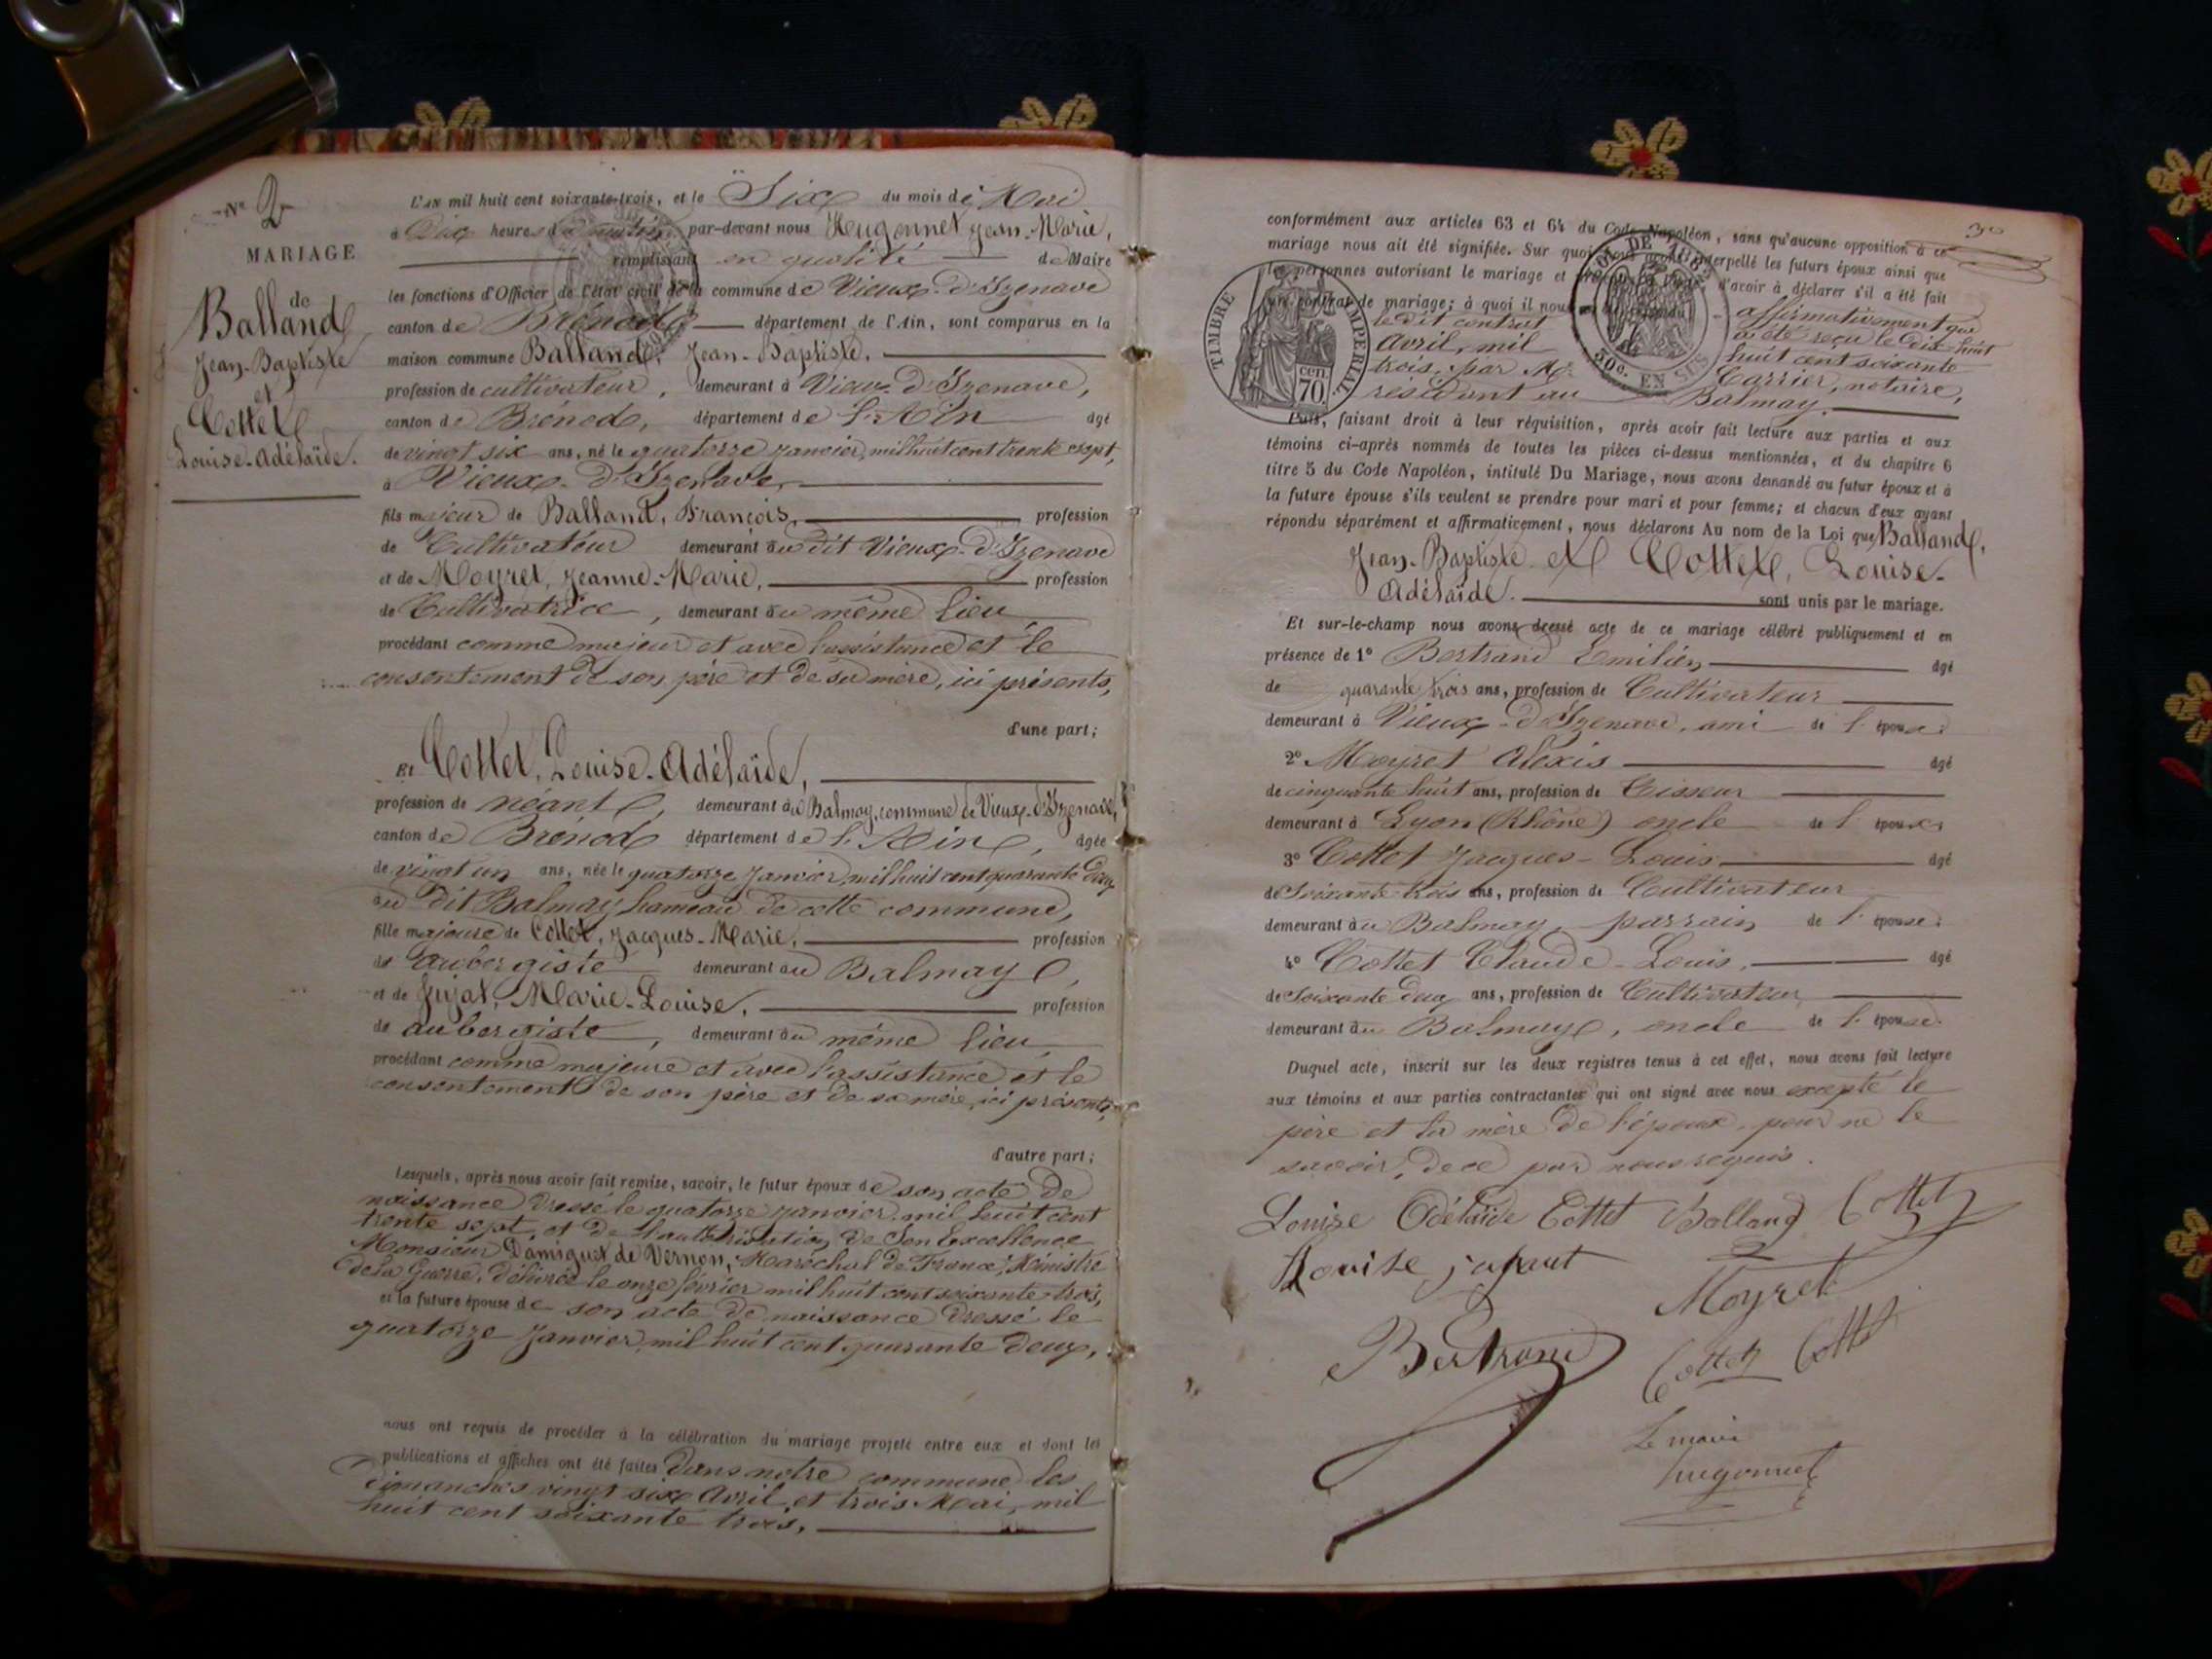 N° 2
MARIAGE
de
Balland
Jean-Baptiste
et
Cottet
Louise-Adélaïde.
L'AN mil huit cent soixante-trois, et le Six du mois de Mai
à Dix heures du matin, par-devant nous Hugonnet Jean-Marie,
remplissant en qualité de Maire
les fonctions d'Officier de l'état civil de la commune de Vieux-d'Izenave
canton de Brénod département de l'Ain, sont comparus en la
maison commune Balland, Jean-Baptiste,
profession de cultivateur, demeurant à Vieux-d'Izenave,
canton de Brénod, département de l'Ain âgé
de vingt six ans, né le quatorze janvier, mil huit cent trente sept,
à Vieux-d'Izenave,
fils majeur de Balland, François, profession
de Cultivateur demeurant au dit Vieux-d'Izenave
et de Moyret, Jeanne-Marie, profession
de Cultivatrice, demeurant au même lieu
procédant comme majeur et avec l'assistance et le
consentement de son père et de sa mère, ici présents,
d'une part;
Et Cottet, Louise-Adélaïde,
profession de néant, demeurant au Balmay, commune de Vieux-d'Izenave,
canton de Brénod département de l'Ain, âgée
de vingt un ans, née le quatorze Janvier, mil huit cent quarante deux
au dit Balmay hameau de cette commune,
fille majeure de Cottet, Jacques-Marie, profession
de aubergiste demeurant au Balmay,
et de Jujat, Marie-Louise, profession
de aubergiste, demeurant au même lieu,
procédant comme majeure et avec l'assistance et le
consentement de son père et de sa mère, ici présents,
d'autre part;
Lesquels, après nous avoir fait remise, savoir, le futur époux de son acte de
naissance dressé le quatorze janvier, mil huit cent
trente sept, et de l'autthorisation de Son Excellence
Monsieur Damiguet de Vernon, Maréchal de France, Ministre
de la Guerre, délivrée le onze février mil huit cent soixante-trois,
et la future épouse de son acte de naissance dressé le
quatorze Janvier, mil huit cent quarante deux,
nous ont requis de procéder à la célébration du mariage projeté entre eux et dont les
publications et affiches ont été faites Dans notre commune les
dimanches vingt six Avril et trois Mai, mil
huit cent soixante trois.
conformément aux articles 63 et 64 du Code Napoléon, sans qu'aucune opposition à ce
mariage nous ait été signifiée. Sur quoi nous avons interpellé les futurs époux ainsi que
les personnes autorisant le mariage et d'avoir à déclarer s'il a été fait
un contrat de mariage; à quoi il nous affirmativement que
le dit contrat a été reçu le Dix-huit
Avril, mil huit cent soixante
trois, par Me Carrier, notaire,
résidant au Balmay.
TIMBRE IMPÉRIAL
cen. 70.
50c. EN SUS
Puis, faisant droit à leur réquisition, après avoir fait lecture aux parties et aux
témoins ci-après nommés de toutes les pièces ci-dessus mentionnées, et du chapitre 6
titre 5 du Code Napoléon, intitulé Du Mariage, nous avons demandé au futur époux et à
la future épouse s'ils veulent se prendre pour mari et pour femme; et chacun d'eux ayant
répondu séparément et affirmativement, nous déclarons Au nom de la Loi que Balland,
Jean-Baptiste et Cottet, Louise-
Adélaïde. sont unis par le mariage.
Et sur-le-champ nous avons dressé acte de ce mariage célébré publiquement et en
présence de 1° Bertrand Emilien âgé
de quarante trois ans, profession de Cultivateur
demeurant à Vieux-d'Izenave, ami de l'épouse;
2° Moyret Alexis âgé
de cinquante huit ans, profession de Tisseur
demeurant à Lyon (Rhône) oncle de l'époux;
3° Cottet Jacques-Louis âgé
de Soixante-trois ans, profession de Cultivateur
demeurant au Balmay, parrain de l'épouse;
4° Cottet Claude-Louis, âgé
de Soixante deux ans, profession de Cultivateur,
demeurant au Balmay, oncle de l'épouse.
Duquel acte, inscrit sur les deux registres tenus à cet effet, nous avons fait lecture
aux témoins et aux parties contractantes qui ont signé avec nous excepté le
père et la mère de l'époux, pour ne le
savoir, de ce par nous requis.
Louise Adélaïde Cottet Balland Cottet
Louise jujaut
Moyret
Bertrand
Cottet Cottet
Le maire
hugonnet